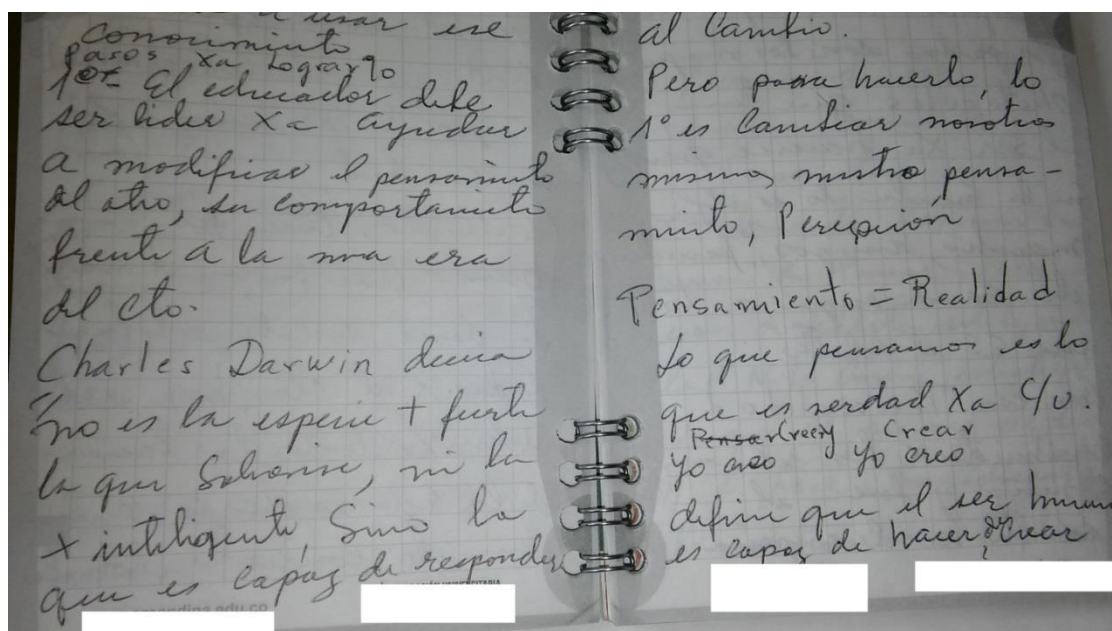 a usar ese
conocimiento
Pasos Xa Lograrlo
1o- El educador debe
ser lider Xa ayudar
a modificar el pensamiento
del otro, su comportamiento
frente a la nva era
del cto.
Charles Darwin decia
"no es la especie + fuerte
la que Sobrevive, ni la
+ inteligente, Sino la
que es capaz de responder
al Cambio.
Pero para hacerlo, lo
1° es Cambiar nosotros
mismos nuestro pensa-
miento, Percepción
Pensamiento = Realidad
Lo que pensamos es lo
que es verdad Xa c/u.
Pensar (creer) Crear
Yo creo Yo creo
define que el ser humano
es capaz de hacer o Crear